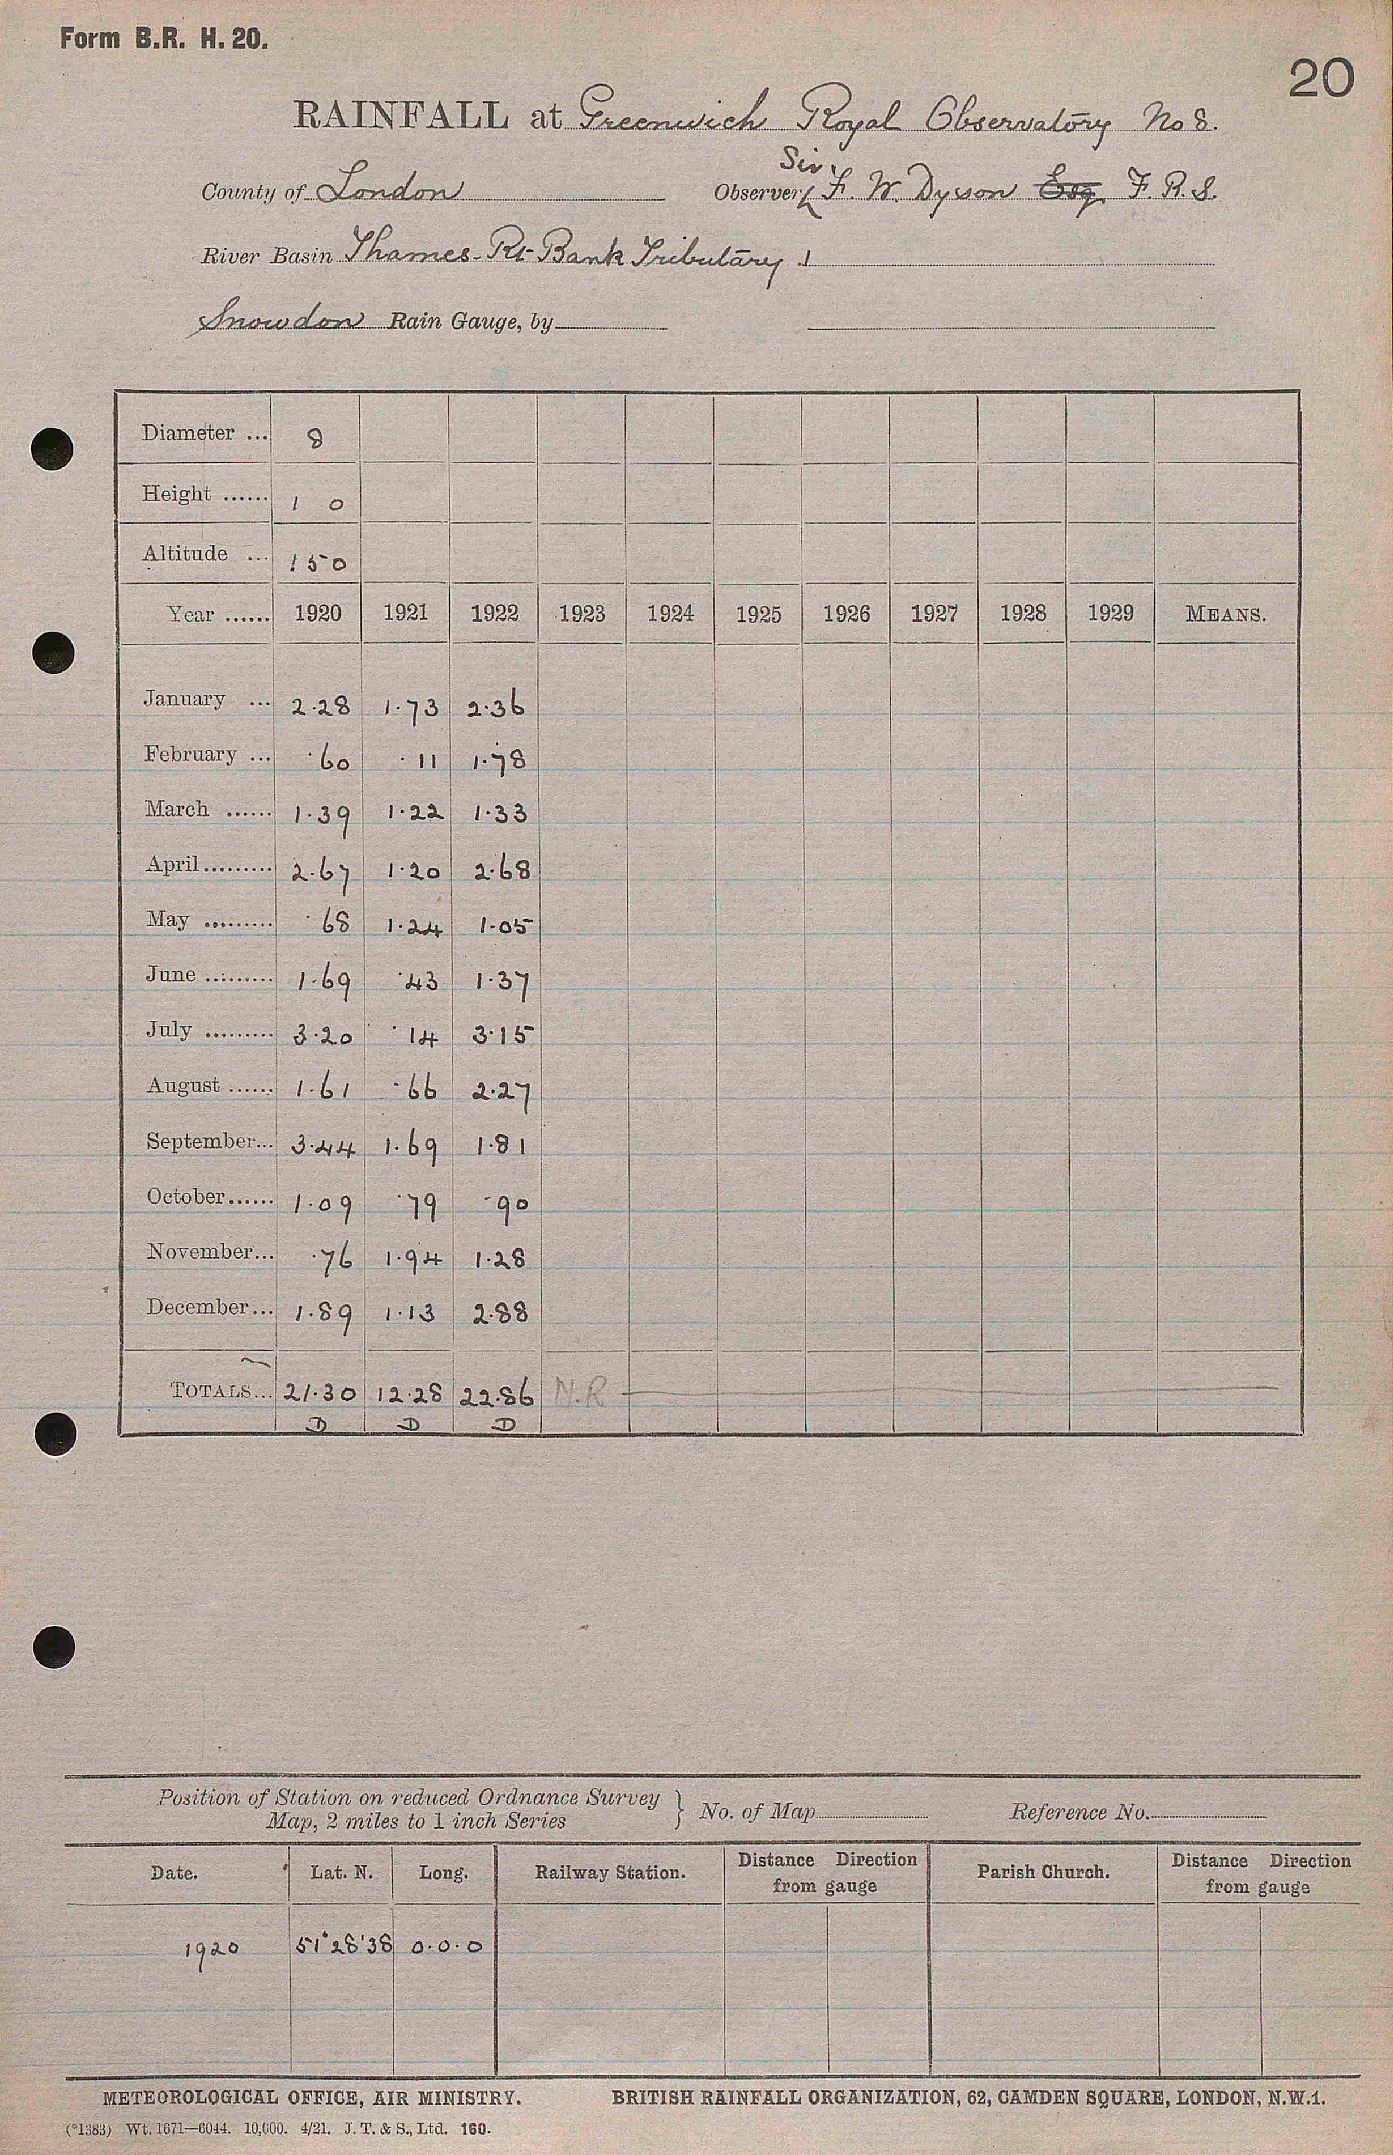 Form B.R. H. 20.
20
RAINFALL at Greenwich Royal Observatory No 8.
Sir
County of London Observer F. W. Dyson Esq F. R. S.
River Basin Thames - Rt Bank Tributary 1
Snowdon Rain Gauge, by
Diameter ... 8
Height ...... 1 0
Altitude ... 150
Year ...... 1920 1921 1922 1923 1924 1925 1926 1927 1928 1929 MEANS.
January ... 2.28 1.73 2.36
February ... .60 .11 1.78
March ...... 1.39 1.22 1.33
April ......... 2.67 1.20 2.68
May ......... .68 1.24 1.05
June ......... 1.69 .43 1.37
July ......... 3.20 .14 3.15
August ...... 1.61 .66 2.27
September... 3.44 1.69 1.81
October ...... 1.09 .79 .90
November... .76 1.94 1.28
December... 1.89 1.13 2.88
TOTALS... 21.30 12.28 22.86 N.R
D D D
Position of Station on reduced Ordnance Survey
Map, 2 miles to 1 inch Series } No. of Map Reference No.
Date. Lat. N. Long. Railway Station. Distance Direction from gauge Parish Church. Distance Direction from gauge
1920 51°28'38 0.0.0
METEOROLOGICAL OFFICE, AIR MINISTRY. BRITISH RAINFALL ORGANIZATION, 62, CAMDEN SQUARE, LONDON, N.W.1.
(*1383) Wt. 1671—6044. 10,000. 4/21. J. T. & S., Ltd. 160.